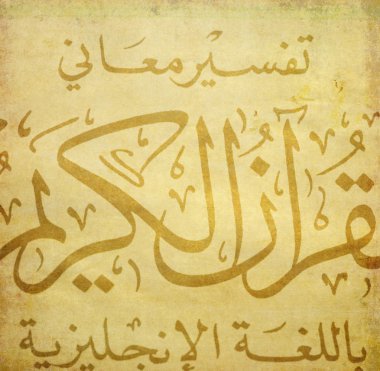 تفسير معاني
القرآن الكريم
باللغة الإنجليزية